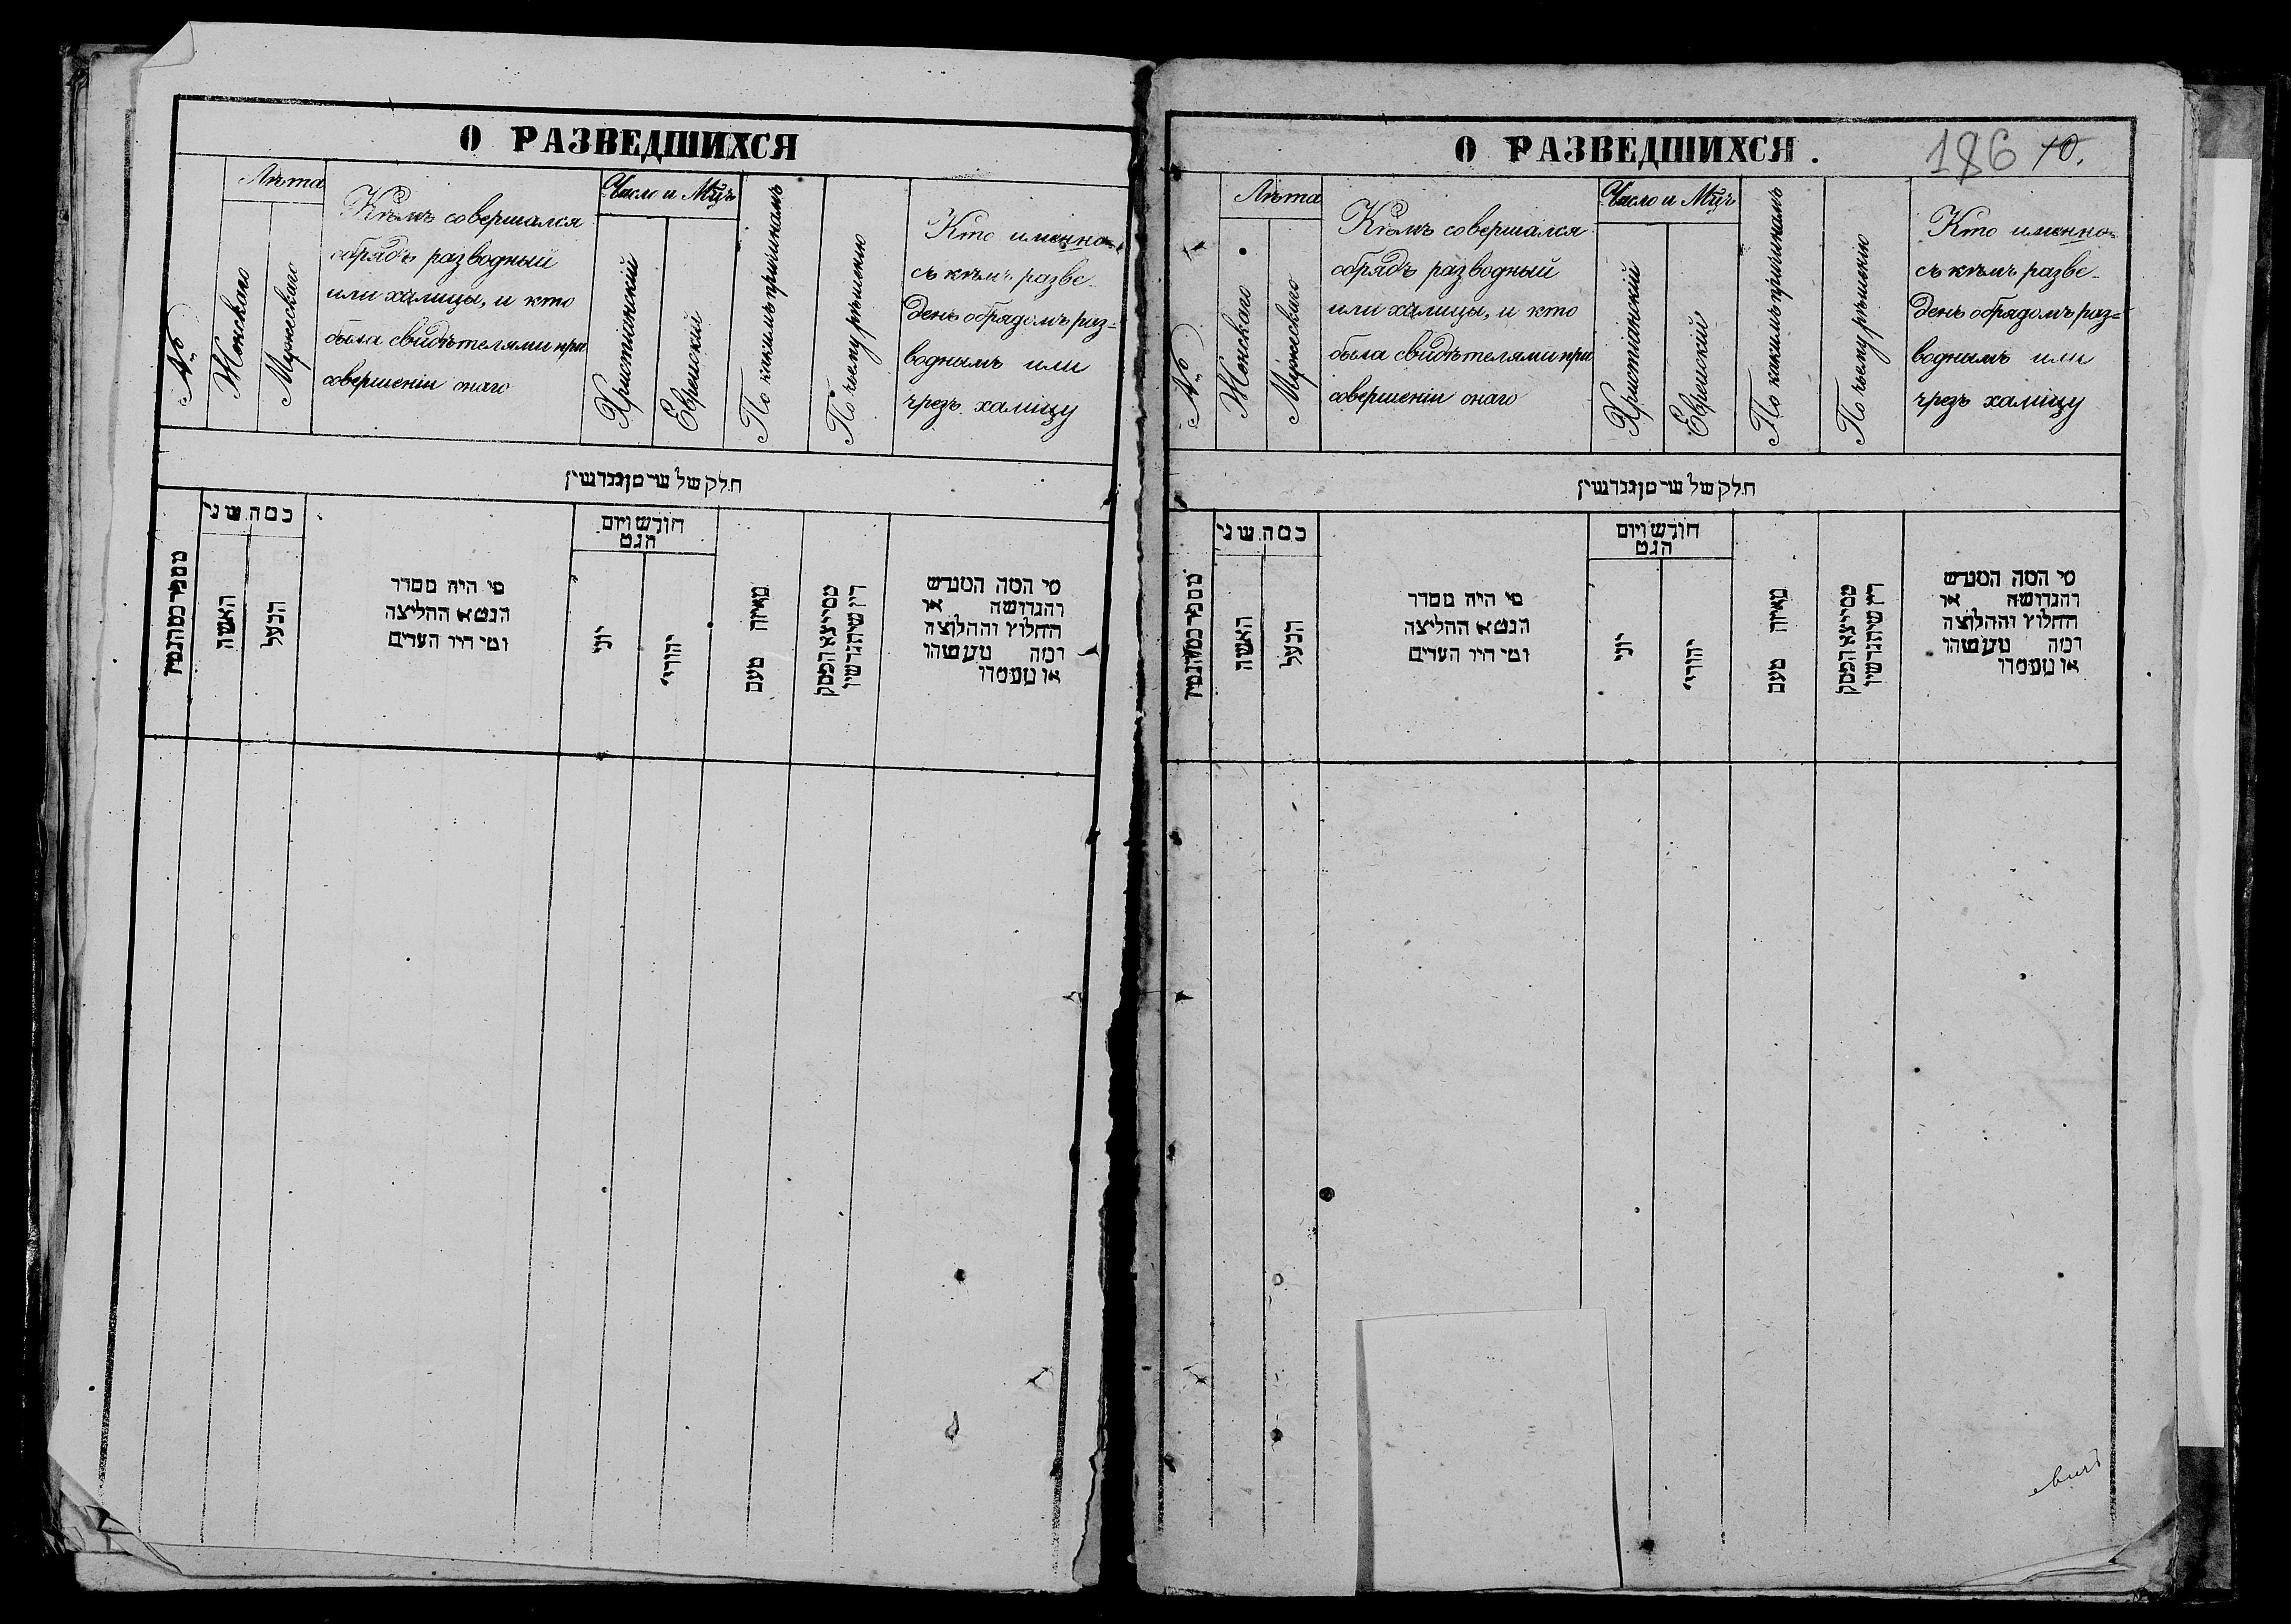 О РАЗВЕДШИХСЯ
№
Лѣта
Женскаго
Мужескаго
Кѣмъ совершался
обрядъ разводный
или халицы, и кто
была свидѣтелями при
совершеніи онаго
Число и Мцъ
Христіанскій
Еврейскій
По какимъ причинамъ
По чьему рѣшенію
Кто именно
съ кѣмъ разве-
денъ обрядомъ раз=
воднымъ или
чрезъ халицу
חלק של
כמה שני
האשה
הבעל
מי היה מסדר
הגט או ההליצה
ומי היו העדים
חודש ויום
הגט
יוני
יהודי
מאיזה טעם
ממי יצא הפסק
דין שיתגרשו
מי המה המגרש
והגרושה או
החלוץ והחלוצה
ומה מעשהו
או מעמדו
О РАЗВЕДШИХСЯ.
186 10.
№
Лѣта
Женскаго
Мужескаго
Кѣмъ совершался
обрядъ разводный
или халицы, и кто
была свидѣтелями при
совершеніи онаго
Число и Мцъ
Христіанскій
Еврейскій
По какимъ причинамъ
По чьему рѣшенію
Кто именно
съ кѣмъ разве-
денъ обрядомъ раз=
воднымъ или
чрезъ халицу
חלק של
כמה שני
האשה
הבעל
מי היה מסדר
הגט או ההליצה
ומי היו העדים
חודש ויום
הגט
יוני
יהודי
מאיזה טעם
ממי יצא הפסק
דין שיתגרשו
מי המה המגרש
והגרושה או
החלוץ והחלוצה
ומה מעשהו
או מעמדו
евичъ